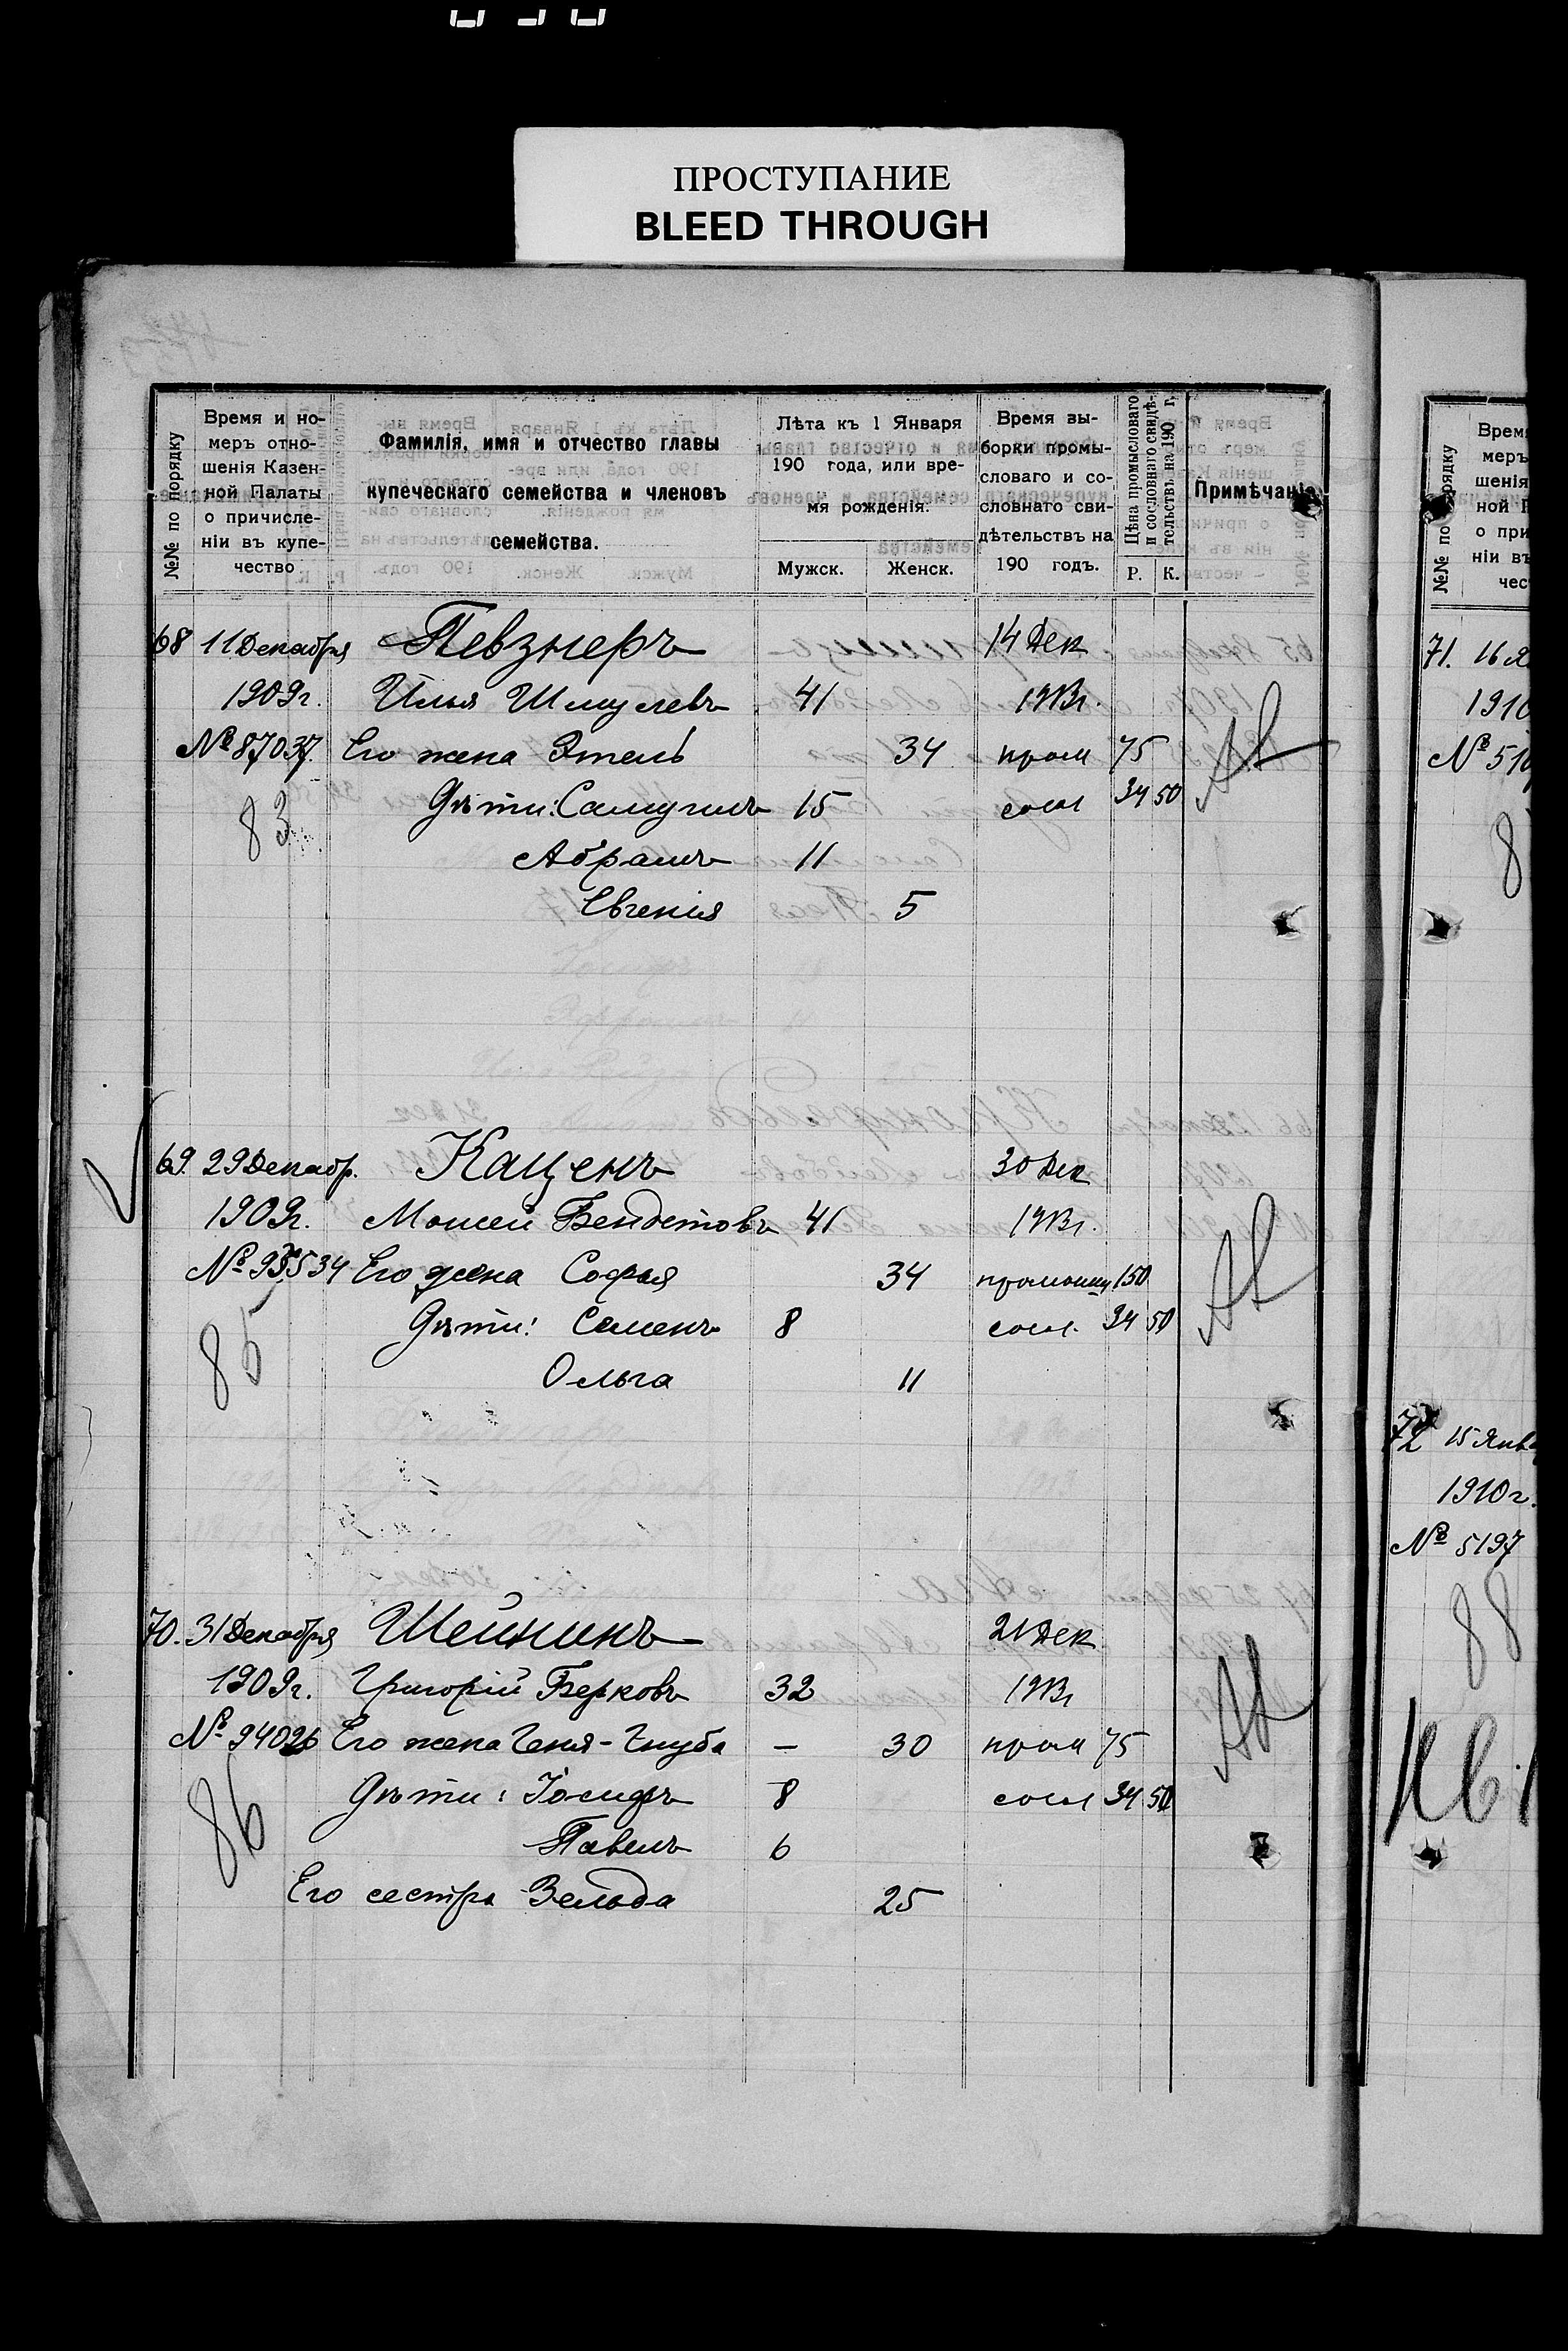 ПРОСТУПАНИЕ
BLEED THROUGH
№№ по порядку
Время и но-
меръ отно-
шенія Казен-
ной Палаты
о причисле-
ніи въ купе-
чество
Фамилія, имя и отчество главы
купеческаго семейства и членовъ
семейства.
Лѣта къ 1 Января
190 года, или вре-
мя рожденія.
Мужск. Женск.
Время вы-
борки промы-
словаго и со-
словнаго сви-
дѣтельствъ на
190 годъ.
Цѣна промысловаго
и сословнаго свидѣ-
тельствъ на 190 г.
Р. К.
Примѣчаніе
68 11 Декабря Певзнеръ 14 Дек
1909г. Илья Шмулевъ 41 1913г.
№ 87037. Его жена Этель 34 пром 75
83 Дѣти: Самуилъ 15 сосл 34 50
Абрамъ 11
Евгенія 5
69. 29 Декабр. Каценъ 30 Дек
1909г. Моисей Бендетовъ 41 1913г.
Его жена Софья 34 150
85 Дѣти: Семенъ 8 сосл. 34 50
Ольга 11
70. 31 Декабря Шейнинъ 21 Дек
1909г. Григорій Берковъ 32 1913г
№ 94026 Его жена – 30 пром 75
86 Дѣти: Іосифъ 8 сосл 34 50
Павелъ 6
Его сестра Зельда 25
№№ по порядку
Врем
меръ
шенія
ной П
о при
ніи въ
чест
71. 16 Я
1910
№ 510
8
72 15 Янв
1910г.
№ 5197
88